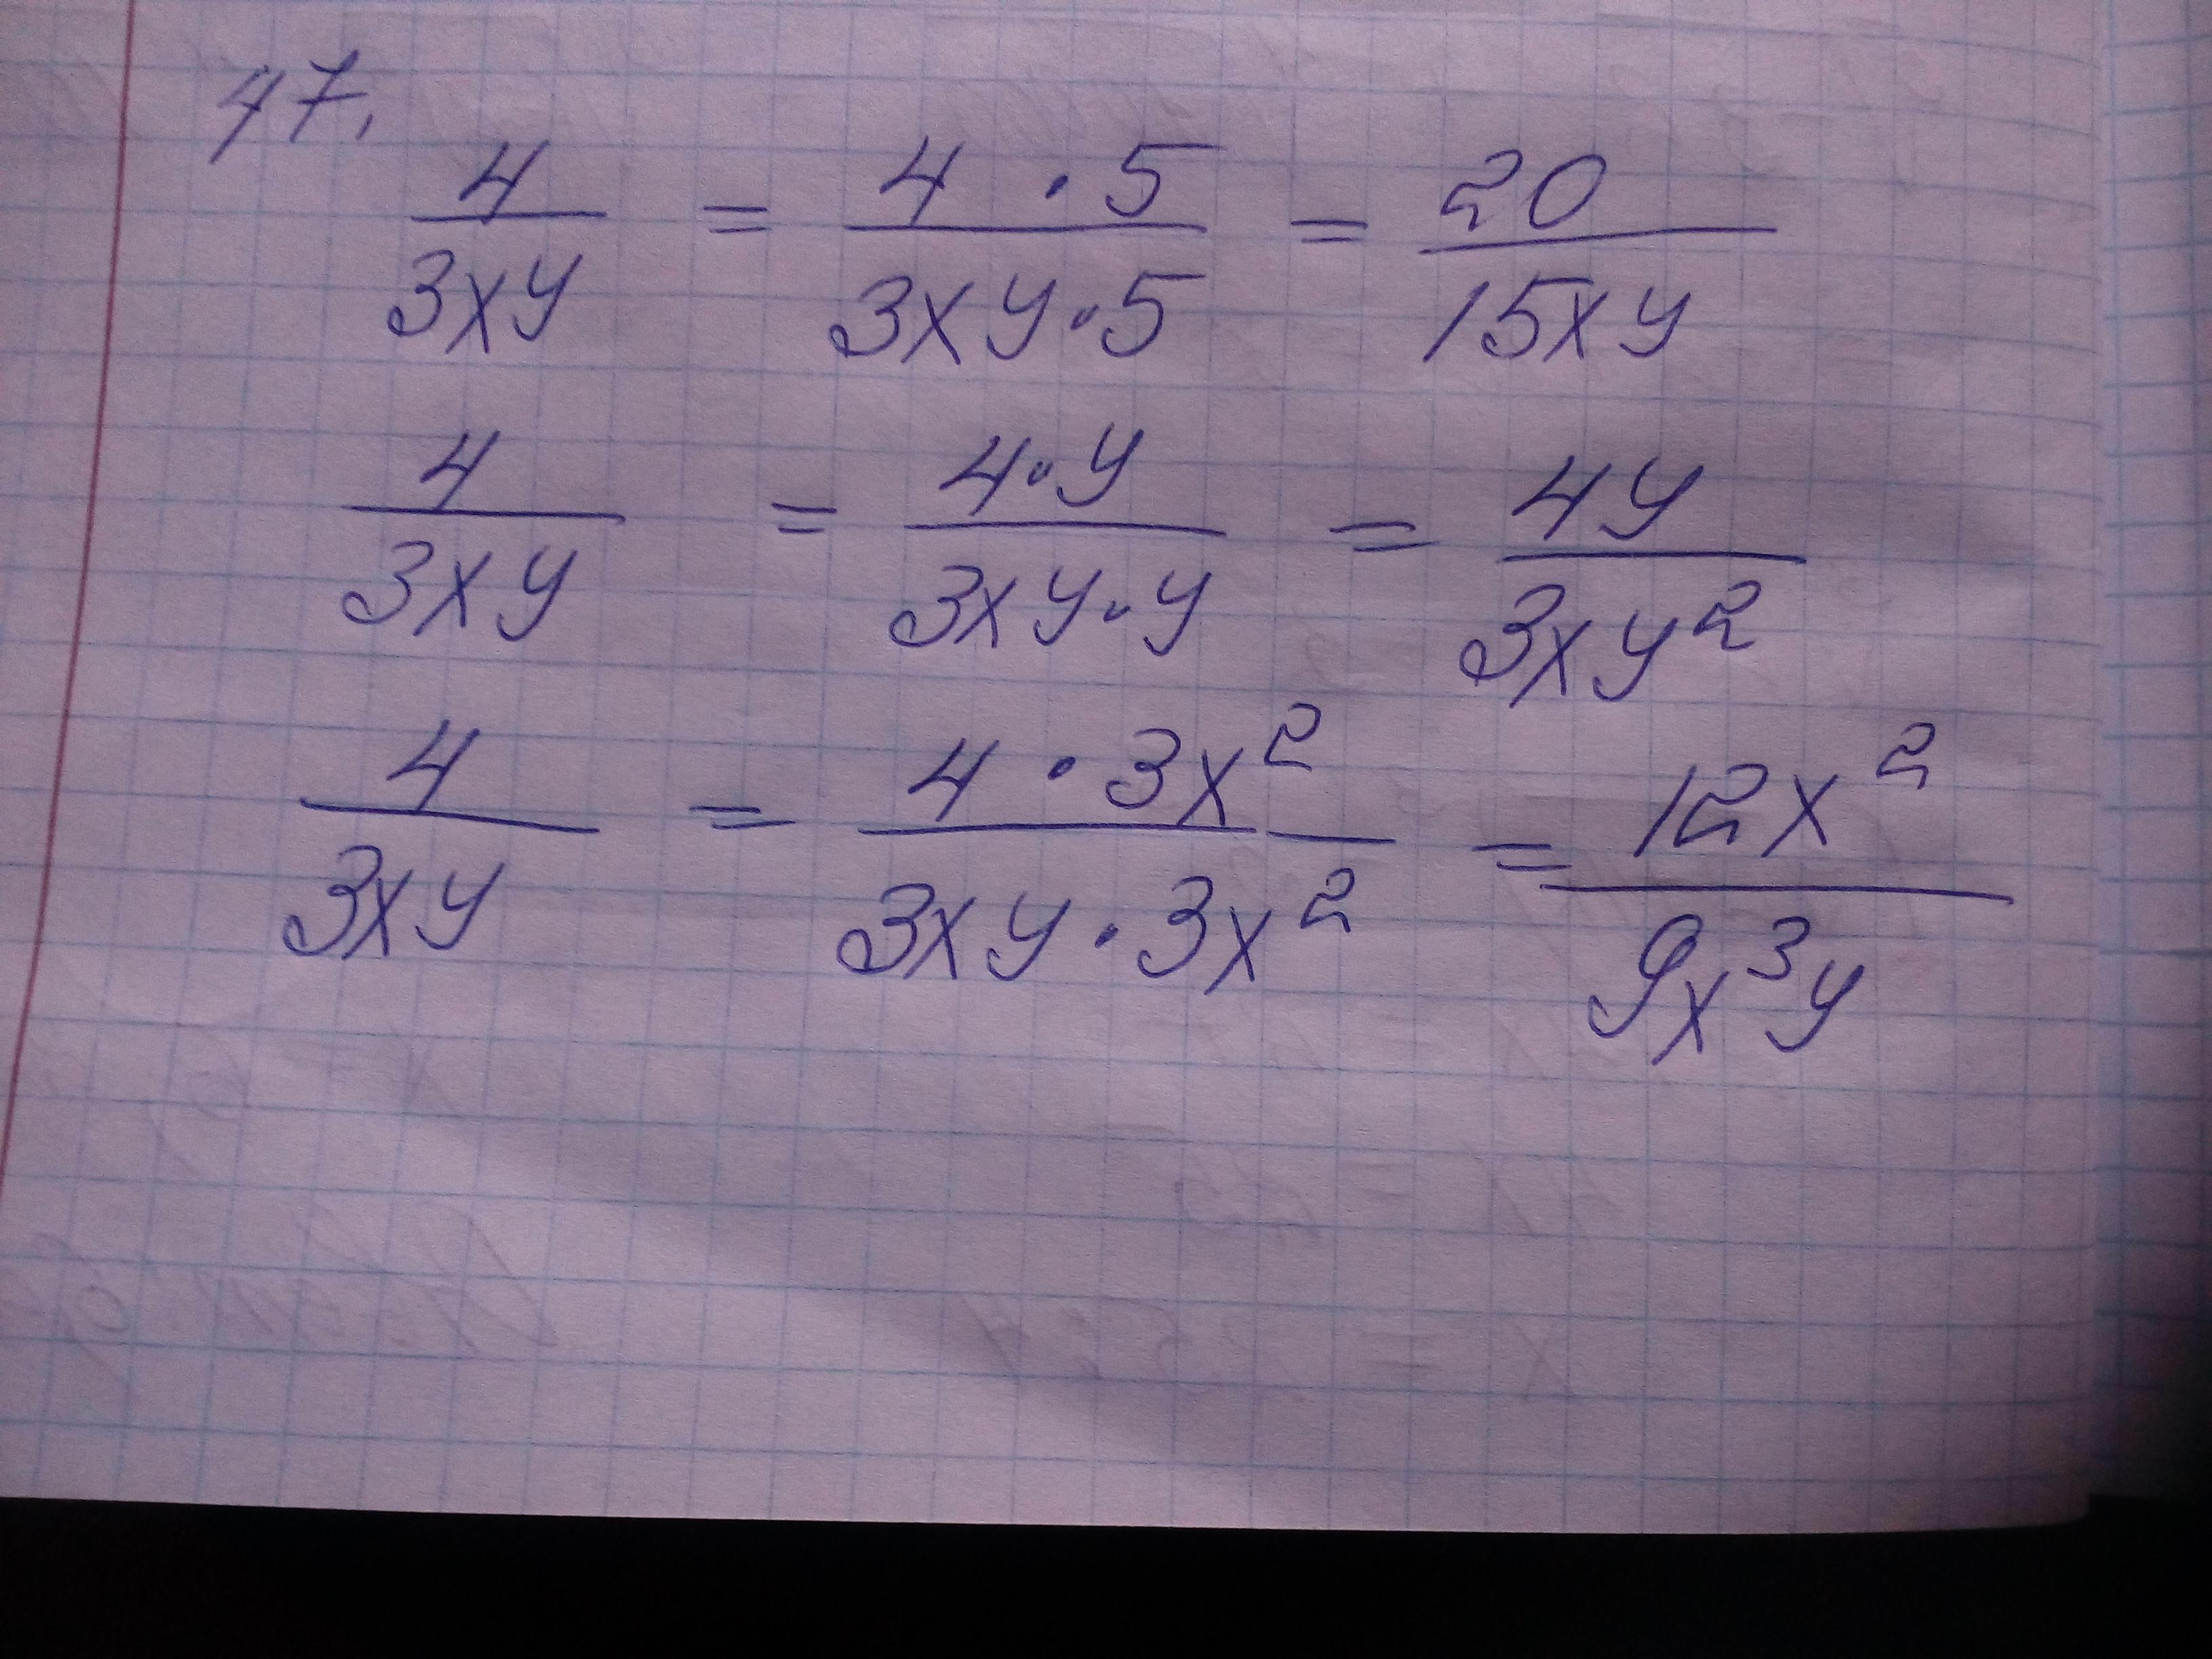 47.
4/3xy = 4 · 5/3xy · 5 = 20/15xy
4/3xy = 4 · y/3xy · y = 4y/3xy²
4/3xy = 4 · 3x²/3xy · 3x² = 12x²/9x³y